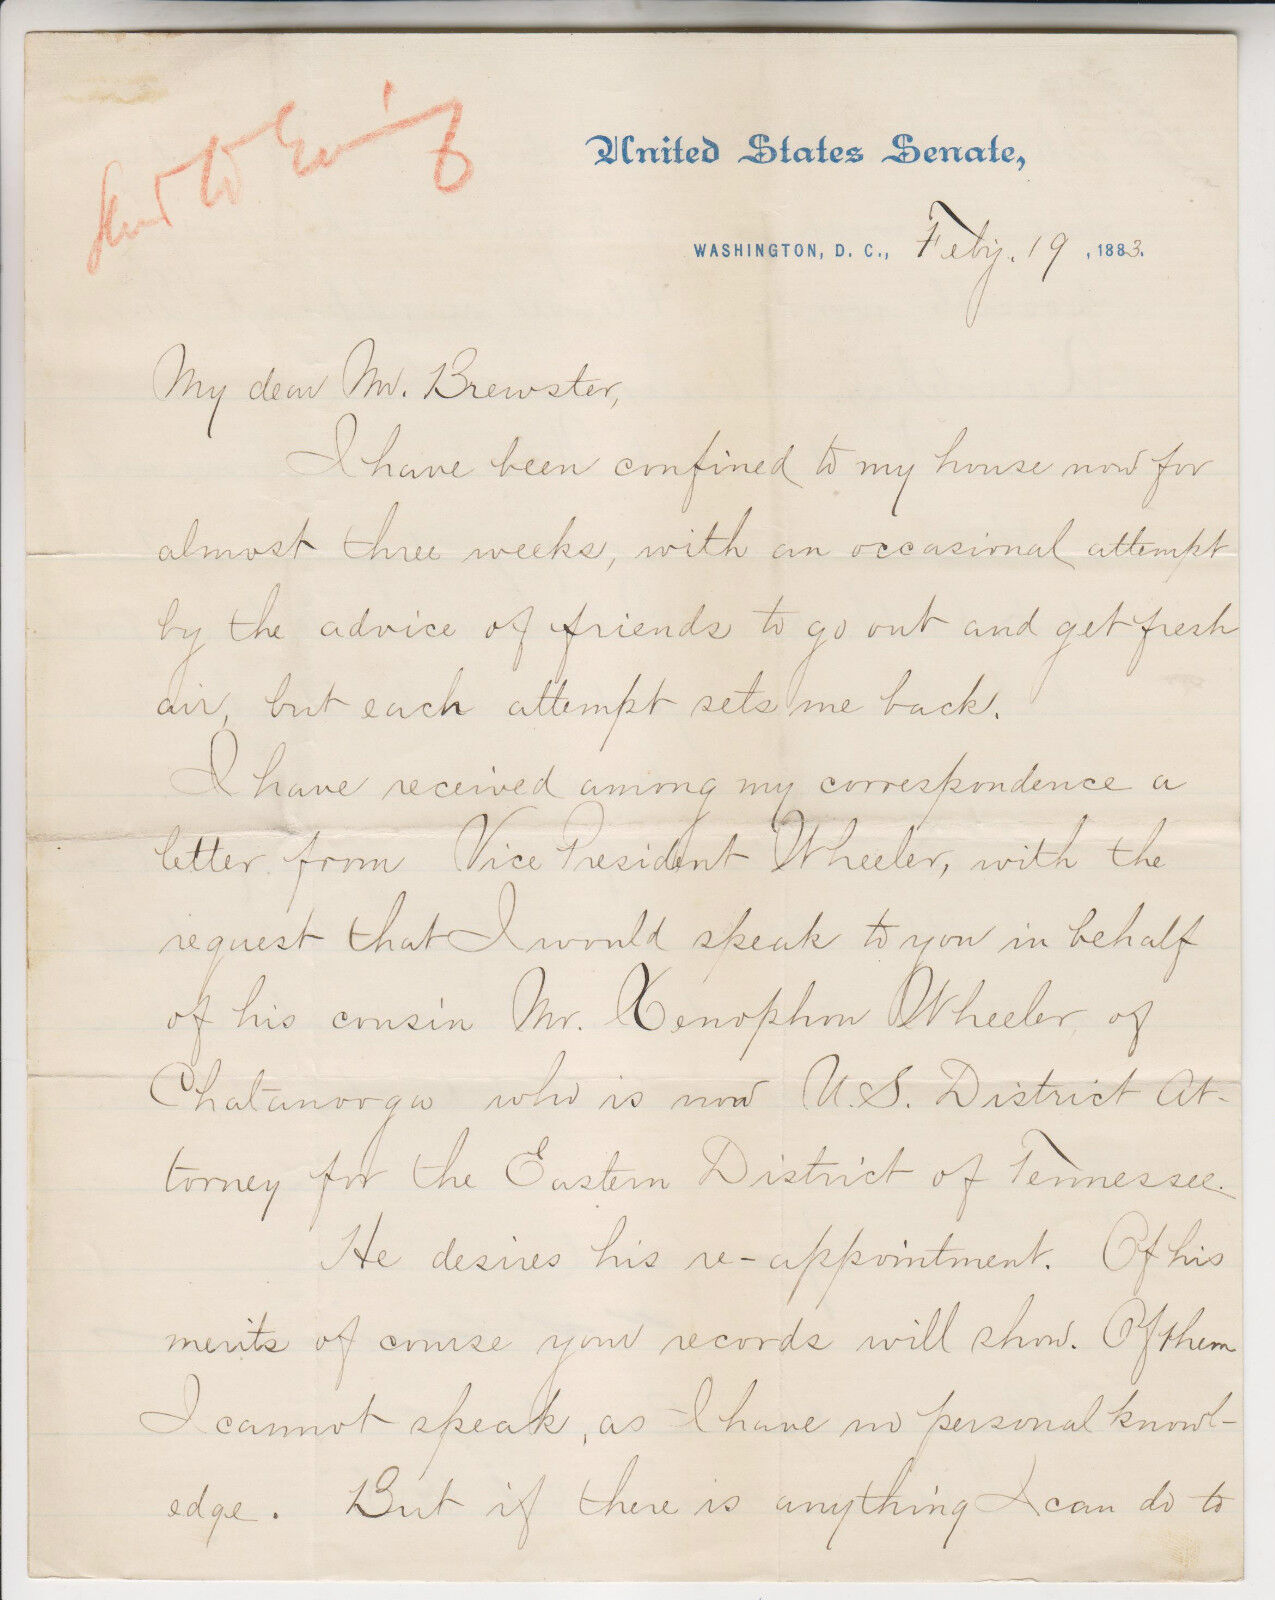 Sent to Ewing
United States Senate,
WASHINGTON, D. C., Feby. 19, 1883.
My dear Mr. Brewster,
I have been confined to my house now for
almost three weeks, with an occasional attempt
by the advice of friends to go out and get fresh
air, but each attempt sets me back.
I have received among my correspondence a
letter from Vice President Wheeler, with the
request that I would speak to you in behalf
of his cousin Mr. Xenophon Wheeler, of
Chatanooga who is now U.S. District At-
torney for the Eastern District of Tennessee.
He desires his re-appointment. Of his
merits of course your records will show. Of them
I cannot speak, as I have no personal knowl-
edge. But if there is anything I can do to